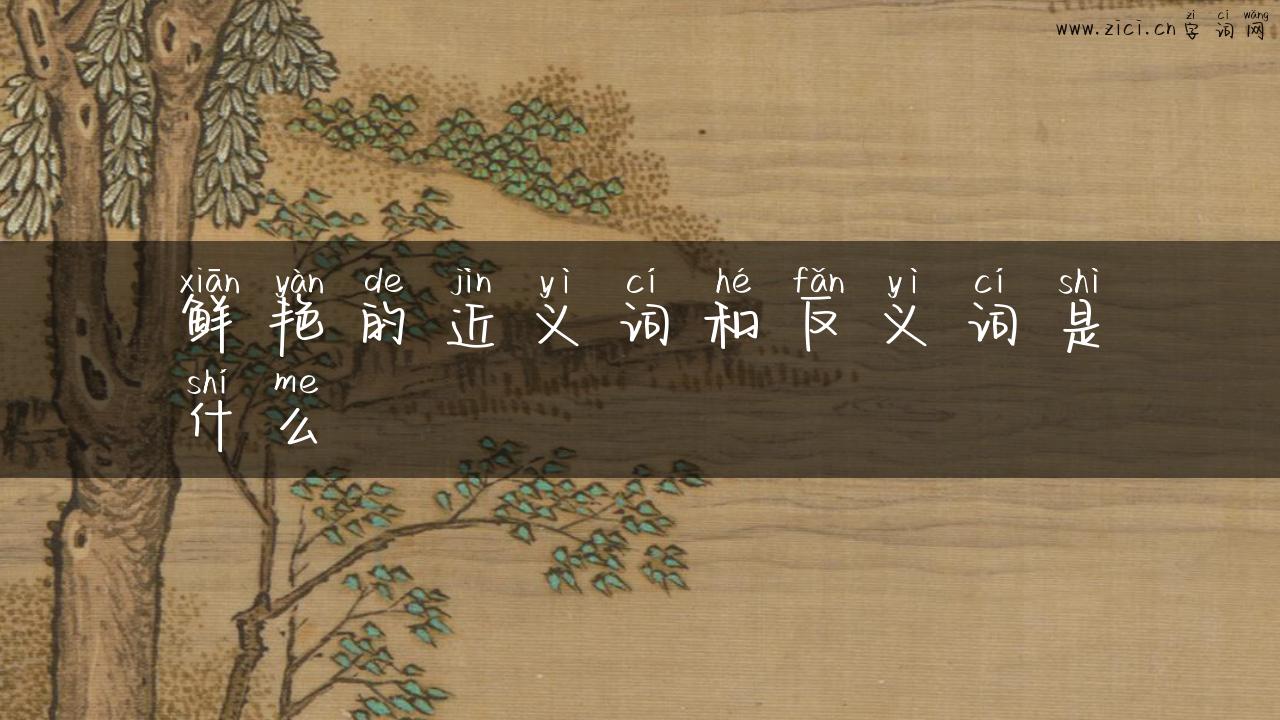 zì cí wǎng
www.zici.cn 字词网
xiān yàn de jìn yì cí hé fǎn yì cí shì
鲜艳的近义词和反义词是
shí me
什么